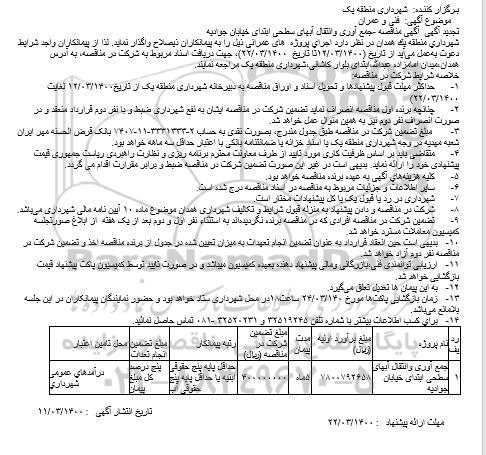 برگزار کننده: شهرداری منطقه یک
موضوع آگهی: فنی و عمران
تجدید آگهی آگهی مناقصه -جمع آوری وانتقال آبهای سطحی ابتدای خیابان جوادیه
شهرداری منطقه یك همدان در نظر دارد اجرای پروژه های عمرانی ذیل را به پیمانكاران ذیصلاح واگذار نماید. لذا از پیمانكاران واجد شرایط
دعوت به‌عمل می‌آید از تاریخ (۱۲/۰۳/۱۴۰۰تا تاریخ ۲۲/۰۳/۱۴۰۰)، جهت دریافت اسناد مربوط به شركت در مناقصه، به آدرس
همدان،میدان امامزاده عبدا...،ابتدای بلوار کاشانی،شهرداری منطقه یک مراجعه نمایند.
خلاصه شرایط شرکت در مناقصه:
۱- حداکثر مهلت قبول پیشنهادها و تحویل اسناد و اوراق مناقصه به دبیرخانه شهرداری منطقه یک از تاریخ۱۲/۰۳/۱۴۰۰ لغایت
۲۲/۰۳/۱۴۰۰)
۲- چنانچه برنده اول مناقصه انصراف نماید تضمین شرکت در مناقصه ایشان به نفع شهرداری ضبط و با نفر دوم قرارداد منعقد و در
صورت انصراف نفر دوم نیز به همین منوال عمل خواهد شد.
۳- مبلغ تضمین شرکت در مناقصه طبق جدول مندرج، بصورت نقدی به حساب
بانک قرض الحسنه مهر ایران
شعبه مهدیه در وجه شهرداری منطقه یک یا اسناد خزانه یا ضمانتنامه بانکی با اعتبار حداقل سه ماهه خواهد بود.
۴- متقاضی باید بر اساس ظرفیت کاری مورد تایید از طرف معاونت محترم برنامه ریزی و نظارت راهبردی ریاست جمهوری قیمت
پیشنهادی خود را ارائه نماید. بدیهی است در غیر این صورت تضمین شرکت در مناقصه ضبط و برابر مقررات اقدام می گردد.
۵- کلیه هزینه‌های آگهی به عهده برنده مناقصه خواهد بود.
۶- سایر اطلاعات و جزئیات مربوط به مناقصه در اسناد مناقصه درج شده است.
۷- شهرداری در رد یا قبول یک یا کل پیشنهادات مختار است.
۸- شرکت در مناقصه و دادن پیشنهاد به منزله قبول شرایط و تکالیف شهرداری همدان موضوع ماده ۱۰ آیین نامه مالی شهرداری می‌باشد.
۹- تضمین شرکت در مناقصه افرادی که در مناقصه برنده نگردیده‌اند به استثناء نفر اول و دوم بعد از یک هفته از ابلاغ صورتجلسه
کمیسیون معاملات مسترد خواهد شد.
۱۰- بدیهی است حین انعقاد قرارداد به عنوان تضمین انجام تعهدات به میزان تعیین شده در جدول از برنده مناقصه اخذ و تضمین شرکت در
مناقصه نفر دوم آزاد خواهد شد.
۱۱- ارزیابی توانمندی فنی،بازرگانی ومالی پیشنهاد دهنده بعهده کمیسیون میباشد و در صورت تایید توسط کمیسیون پاکت پیشنهاد قیمت
بازگشایی خواهد شد.
۱۲- به این پیمان ها تعدیل تعلق می‌گیرد.
۱۳- زمان بازگشایی پاکت‌ها مورخ ۲۴/۰۳/۱۴۰۰ ساعت۱۸در محل شهرداری ستاد خواهد بود و حضور نمایندگان پیمانکاران در این جلسه
بلامانع می‌باشد.
۱۴- برای کسب اطلاعات بیشتر با شماره تلفن ۳۲۵۱۹۲۴۵ و ۳۲۵۲۰۲۳۱ -۰۸۱ تماس حاصل نمائید.
ردیف نام پروژه مبلغ برآورد اولیه (ریال) مدت پیمان مبلغ تضمین شرکت در مناقصه (ریال) رتبه پیمانکار مبلغ تضمین انجام تعهدات محل تامین اعتبار
۱ جمع آوری وانتقال آبهای سطحی ابتدای خیابان جوادیه ۷۸۰۰۷۹۲۴۵۸ ۵ماه ۴۰۰۰۰۰۰۰۰ حداقل پایه پنج حقوقی ابنیه یا حداقل پایه پنج حقوقی آب پنج درصد کل مبلغ پیمان درآمدهای عمومی شهرداری
تاریخ انتشار آگهی : ۱۱/۰۳/۱۴۰۰
مهلت ارائه پیشنهاد : ۲۲/۰۳/۱۴۰۰